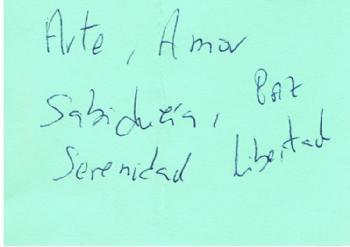 Arte, Amor
Sabiduría, Paz
Serenidad Libertad